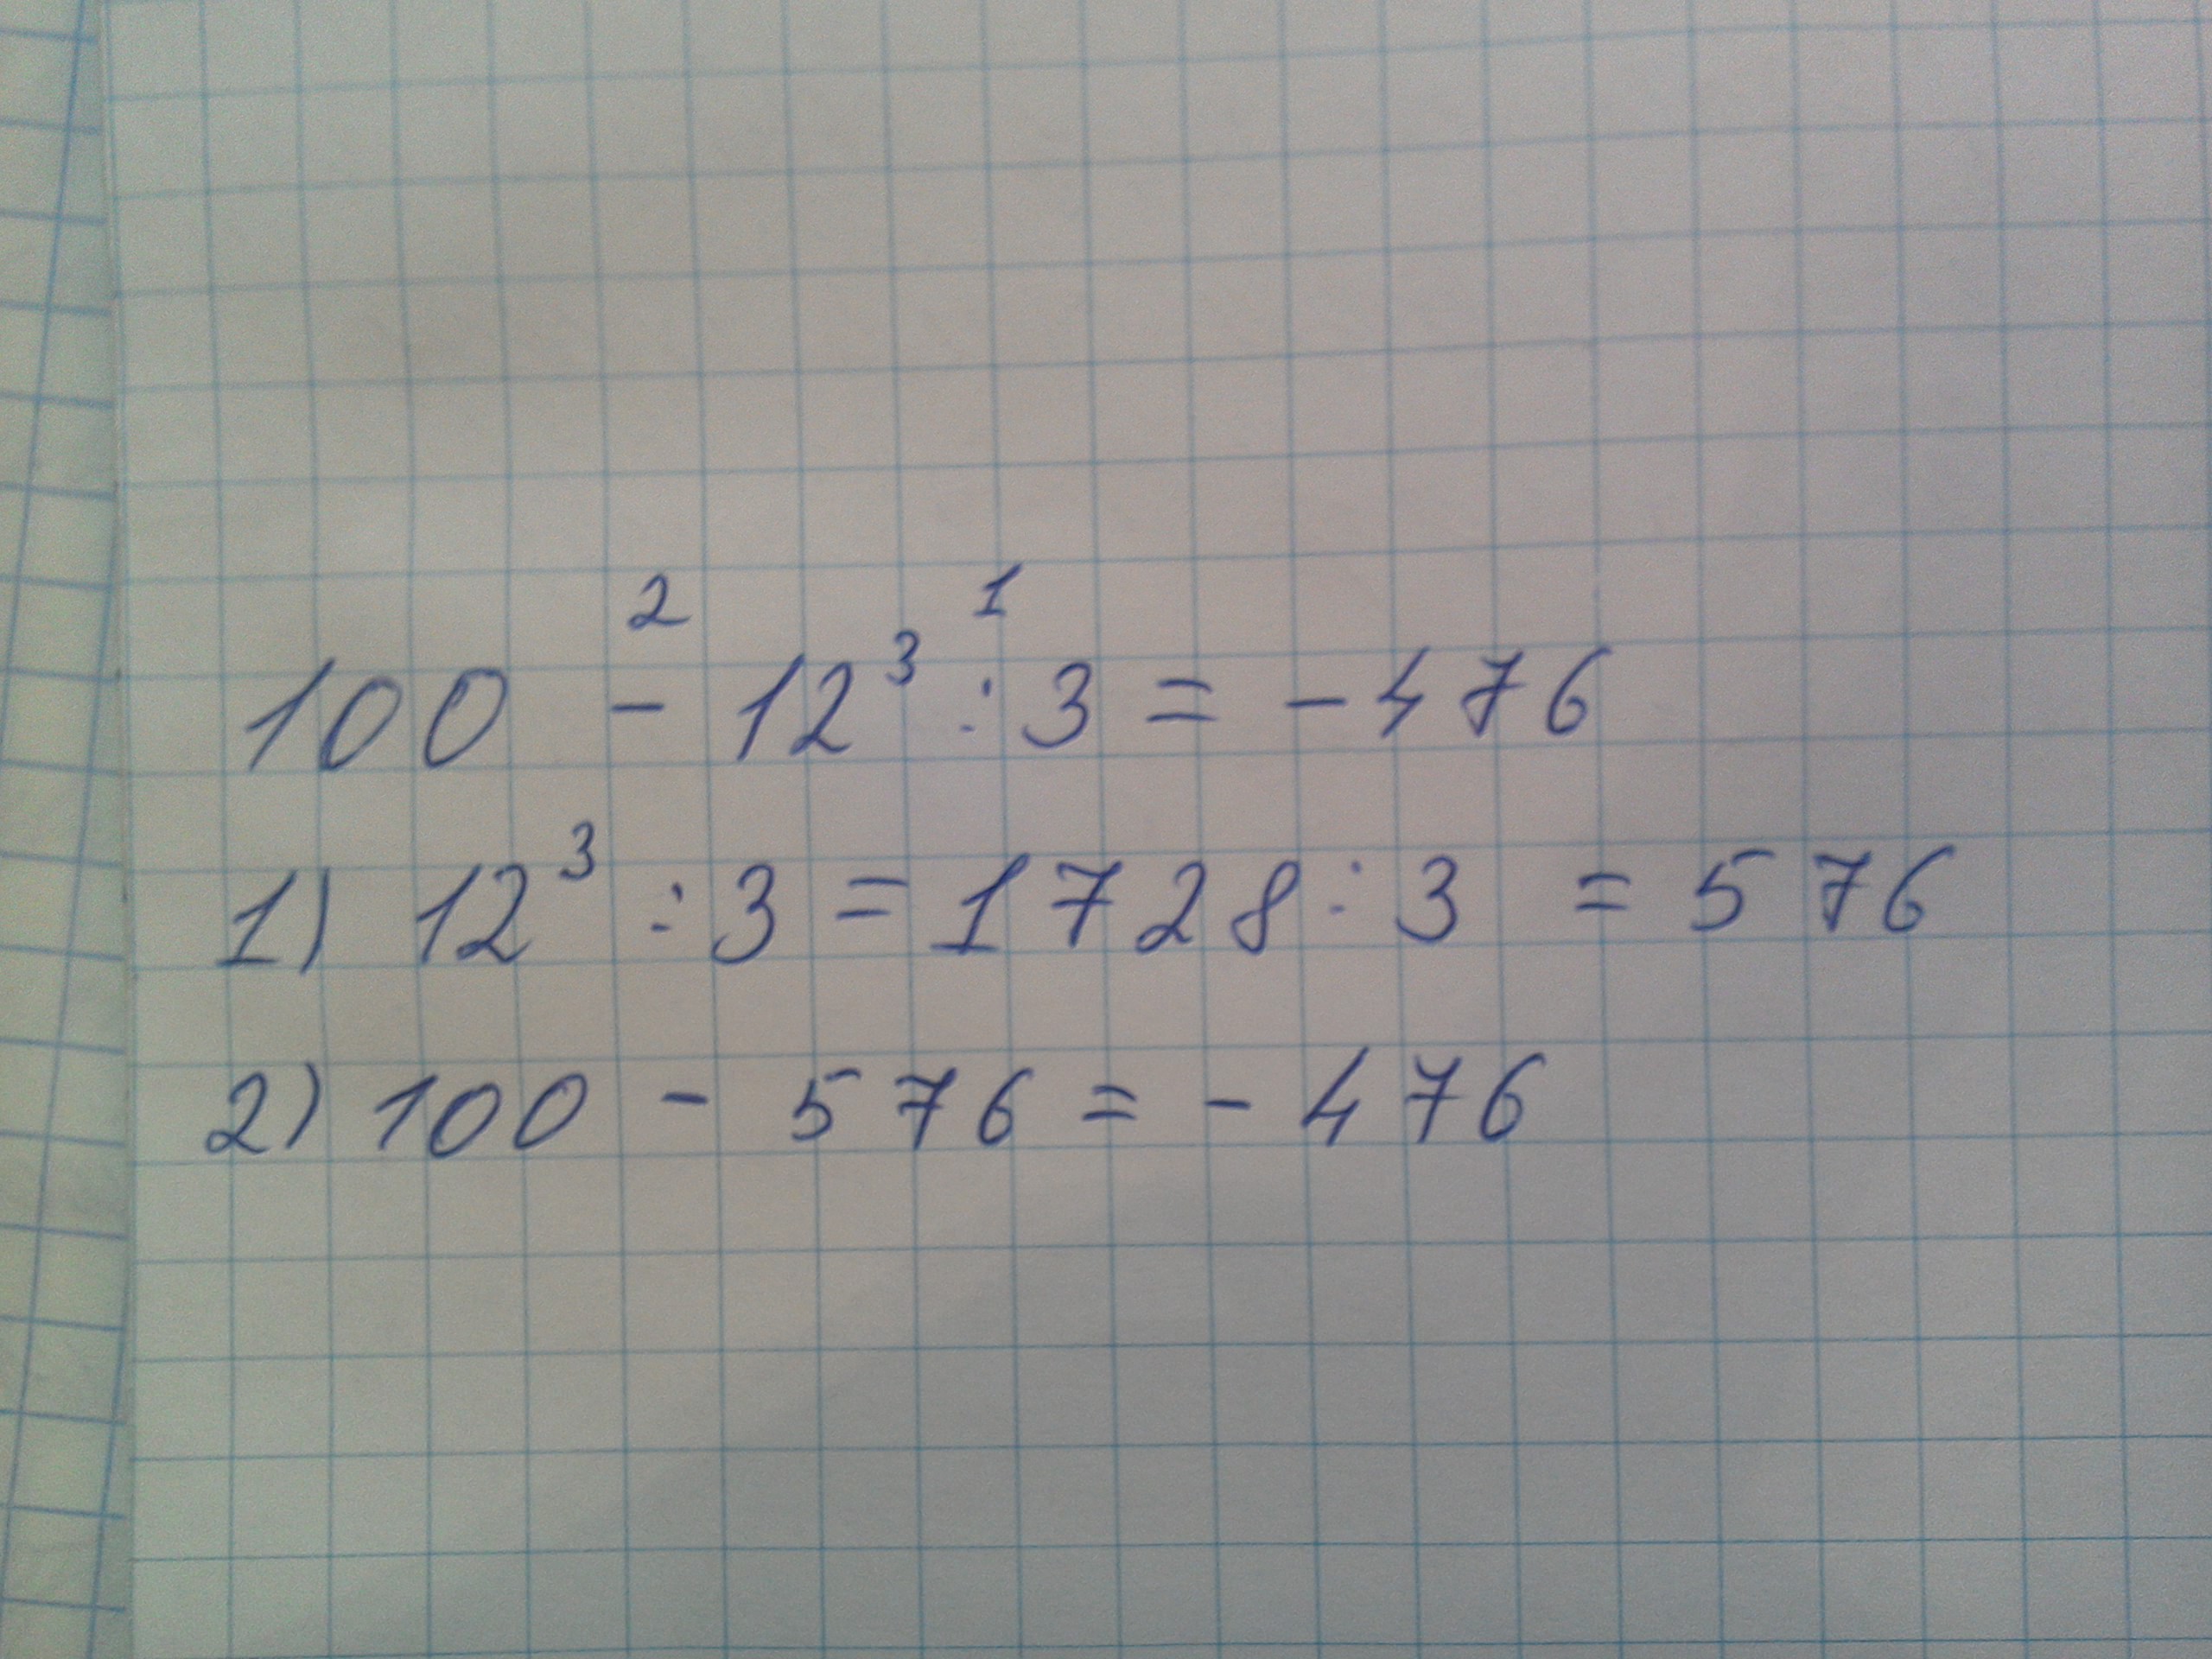 2 1
100 - 12³ : 3 = - 476
1) 12³ : 3 = 1728 : 3 = 576
2) 100 - 576 = - 476